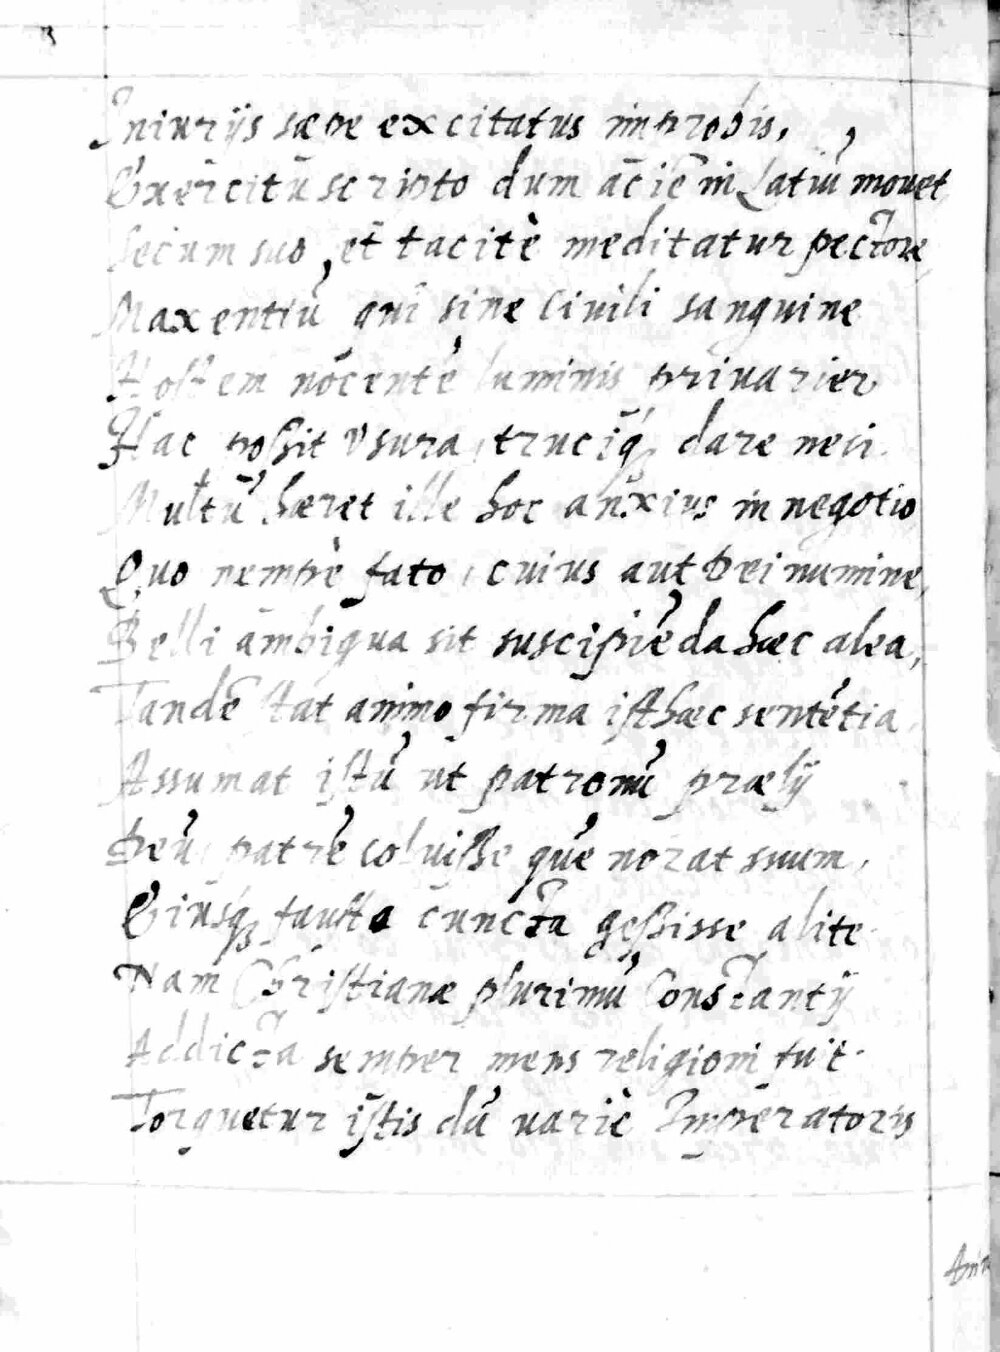 Iniurijs sæpe excitatus improbis,
Exercitũ scripto dum aciẽ in Latiũ mouet
Secum suo, et tacitè meditatur pectore,
Maxentiũ qui sine ciuili sanguine
Hostem nocentẽ luminis priuarier
Hac poßit vsura, truciq́ dare neci.
Multũ hæret ille hoc anxius in negotio
Quo nempè fato, cuius aut Dei numine,
Belli ambigua sit suscipiẽda hæc alea,
Tandẽ stat animo firma isthæc sentẽtia,
Assumat istũ ut patronũ prælij
Deũ, patrẽ coluiße quẽ norat suum,
Eiusq́ fausta cuncta geßisse alite.
Nam Christianæ plurimũ Constantij
Addicta semper mens religioni fuit.
Torquetur istis dũ uariè Imperatoris